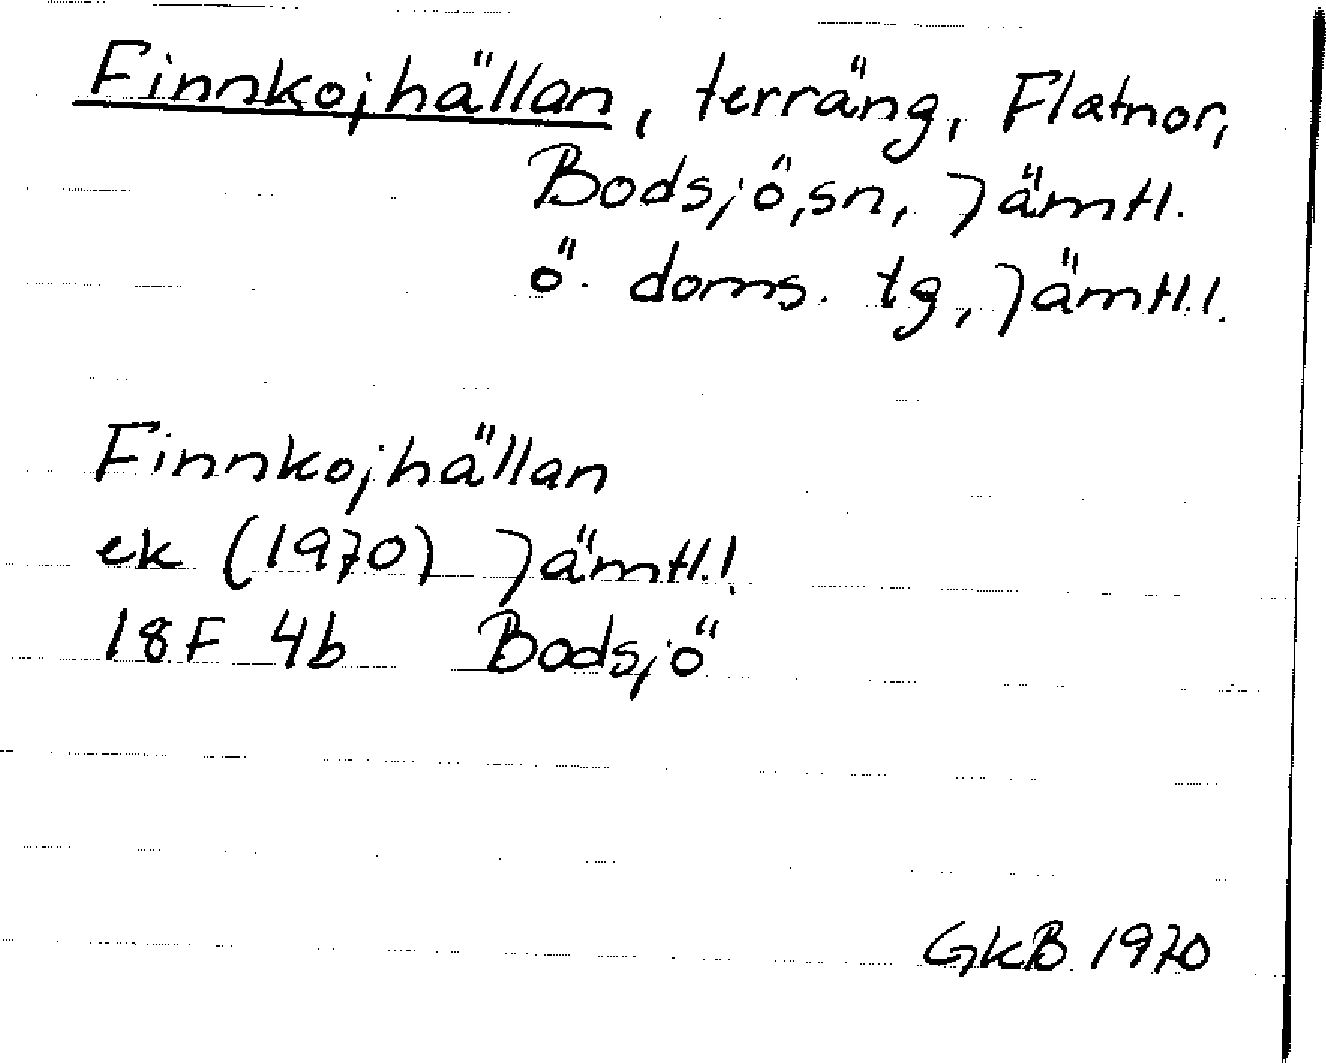 Finnkojhällan, terräng, Flatnor,
Bodsjö, sn, Jämtl.
ö. doms. tg, Jämtl.l.
Finnkojhällan
ek (1970) Jämtl.l.
18F 4b Bodsjö
GKB 1970